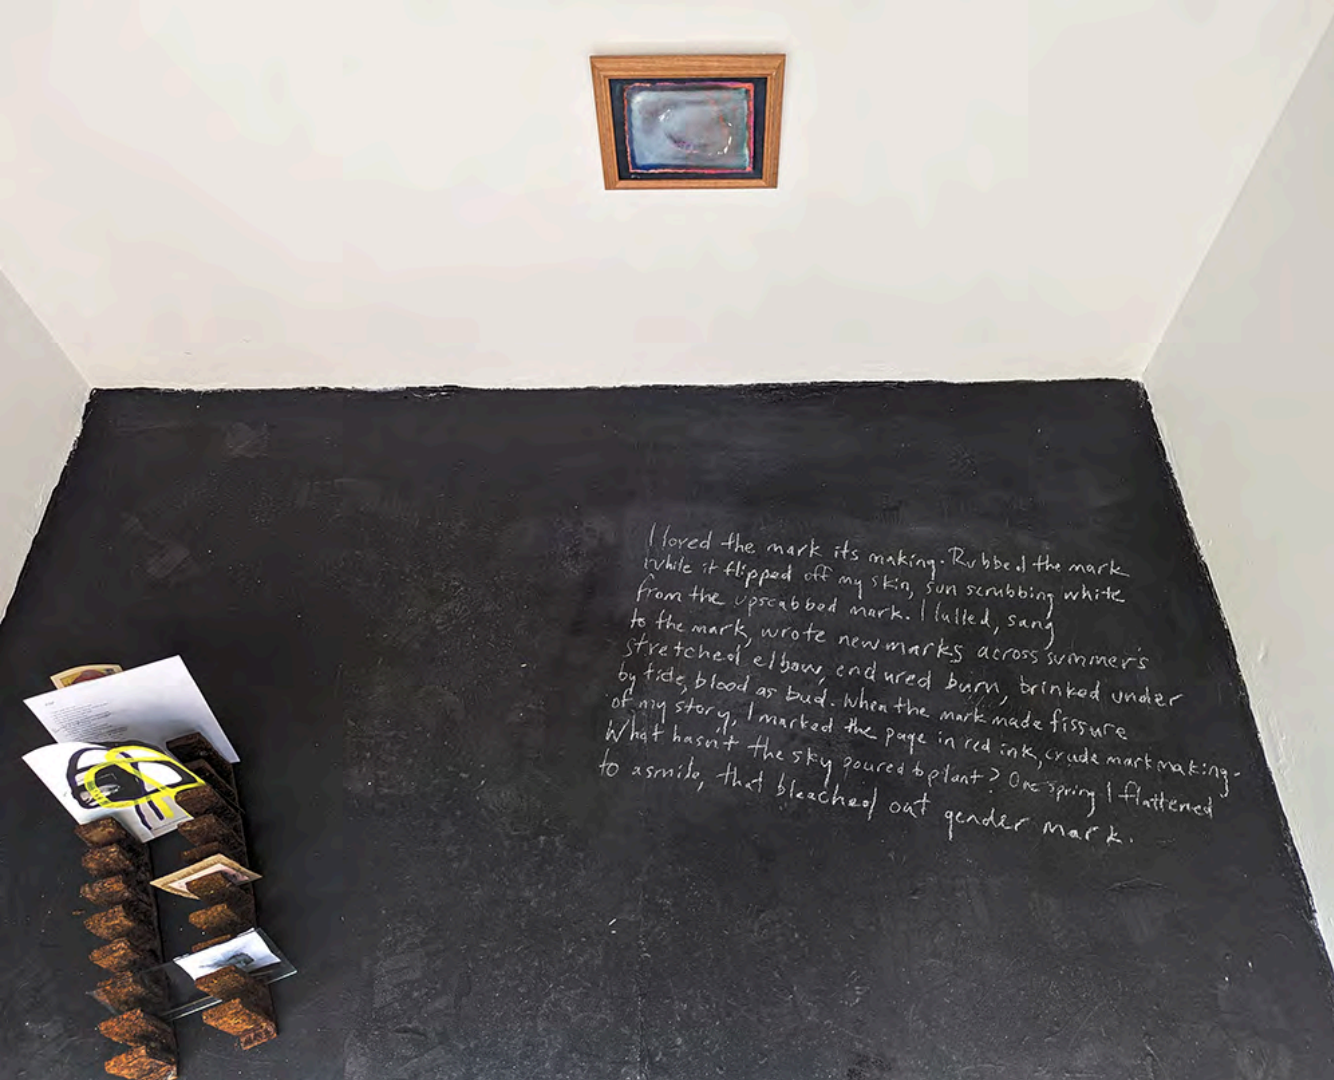 I loved the mark its making. Rubbed the mark
while it flipped off my skin, sun scrubbing white
from the upscabbed mark. I lulled, sang
to the mark, wrote new marks across summer's
stretched elbow, endured burn, brinked under
by tide, blood as bud. When the mark made fissure
of my story, I marked the page in red ink, crude mark making.
What hasn't the sky poured to plant? One spring I flattened
to a smile, that bleached out gender mark.